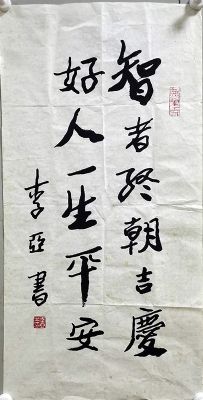 智者終朝吉慶
好人一生平安
李亞書